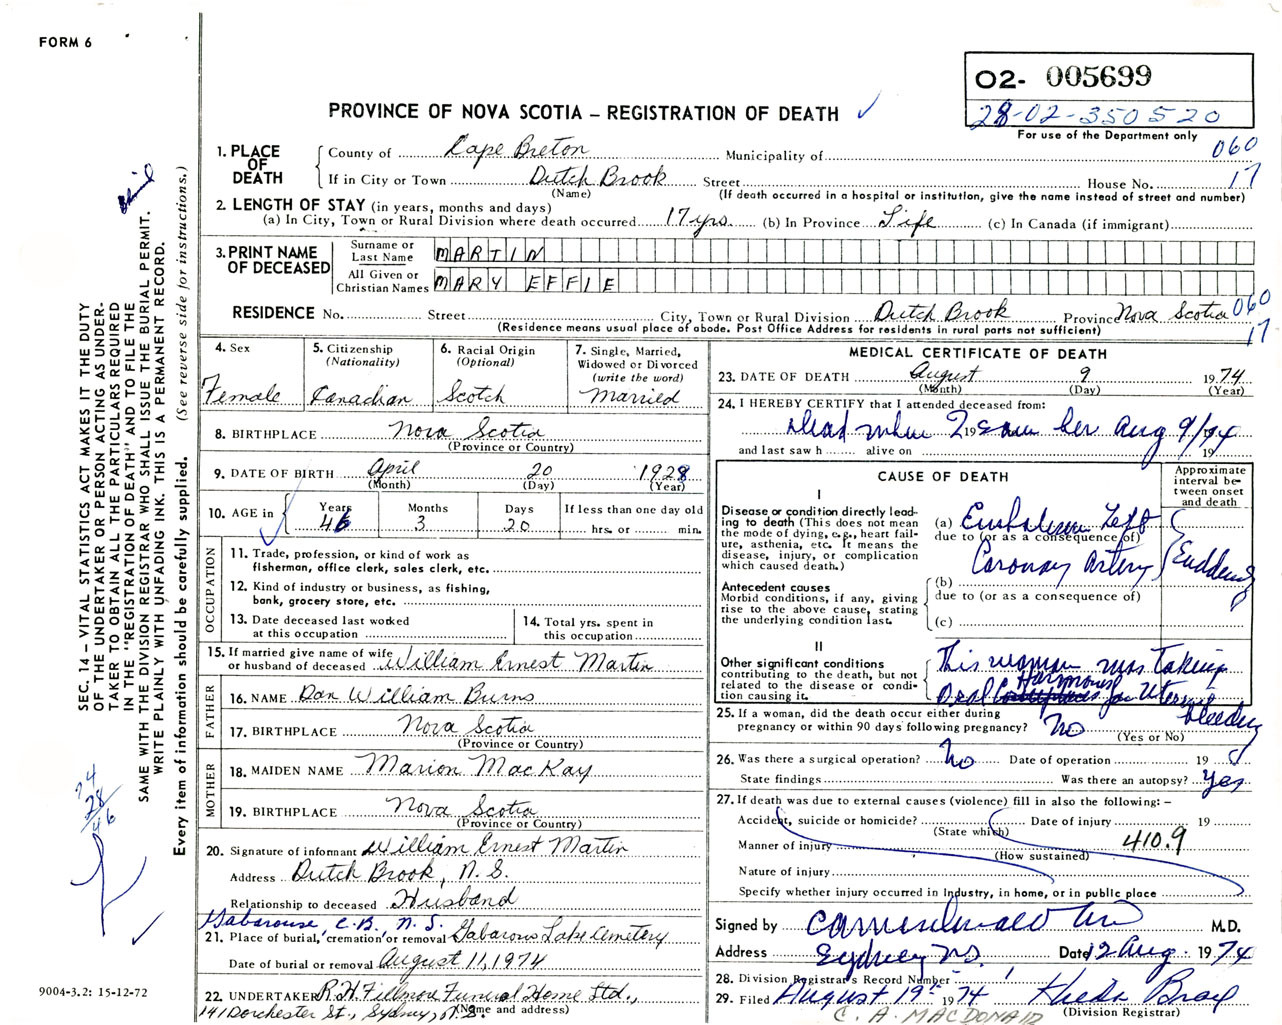 FORM 6
O2- 005699
28-02-350520
For use of the Department only
PROVINCE OF NOVA SCOTIA – REGISTRATION OF DEATH
060
17
1. PLACE OF DEATH
County of Cape Breton Municipality of
If in City or Town Dutch Brook Street House No.
(Name) (If death occurred in a hospital or institution, give the name instead of street and number)
2. LENGTH OF STAY (in years, months and days)
(a) In City, Town or Rural Division where death occurred 17 yrs. (b) In Province Life (c) In Canada (if immigrant)
3. PRINT NAME OF DECEASED
Surname or Last Name MARTIN
All Given or Christian Names MARY EFFIE
RESIDENCE No. Street City, Town or Rural Division Dutch Brook Province Nova Scotia 060
(Residence means usual place of abode. Post Office Address for residents in rural parts not sufficient)
17
4. Sex
Female
5. Citizenship (Nationality)
Canadian
6. Racial Origin (Optional)
Scotch
7. Single, Married, Widowed or Divorced (write the word)
Married
8. BIRTHPLACE Nova Scotia
(Province or Country)
9. DATE OF BIRTH April 20 1928
(Month) (Day) (Year)
10. AGE in
Years 46
Months 3
Days 20
If less than one day old
hrs. or min.
OCCUPATION
11. Trade, profession, or kind of work as
fisherman, office clerk, sales clerk, etc.
12. Kind of industry or business, as fishing,
bank, grocery store, etc.
13. Date deceased last worked
at this occupation
14. Total yrs. spent in
this occupation
15. If married give name of wife
or husband of deceased William Ernest Martin
FATHER
16. NAME Dan William Burns
17. BIRTHPLACE Nova Scotia
(Province or Country)
MOTHER
18. MAIDEN NAME Marion MacKay
19. BIRTHPLACE Nova Scotia
(Province or Country)
20. Signature of informant William Ernest Martin
Address Dutch Brook, N.S.
Relationship to deceased Husband
Gabarouse, C.B., N.S.
21. Place of burial, cremation or removal Gabarous Lake Cemetery
Date of burial or removal August 11, 1974
22. UNDERTAKER R.H. Fillmore Funeral Home Ltd.,
141 Dorchester St., Sydney, N.S. (Name and address)
MEDICAL CERTIFICATE OF DEATH
23. DATE OF DEATH August 9 1974
(Month) (Day) (Year)
24. I HEREBY CERTIFY that I attended deceased from:
Dead when I 19 saw her Aug 9/74
and last saw h alive on 19
CAUSE OF DEATH
Approximate interval between onset and death
I
Disease or condition directly leading to death (This does not mean the mode of dying, e.g., heart failure, asthenia, etc. It means the disease, injury, or complication which caused death.)
(a) Embolism Left
due to (or as a consequence of)
Coronary Artery
Suddenly
Antecedent causes
Morbid conditions, if any, giving rise to the above cause, stating the underlying condition last.
(b)
due to (or as a consequence of)
(c)
II
Other significant conditions contributing to the death, but not related to the disease or condition causing it.
This woman was taking
Oral Hormones for Uterine
bleeding
25. If a woman, did the death occur either during
pregnancy or within 90 days following pregnancy? No
(Yes or No)
26. Was there a surgical operation? No Date of operation 19
State findings Was there an autopsy? Yes
27. If death was due to external causes (violence) fill in also the following: –
Accident, suicide or homicide? Date of injury 19
(State which)
Manner of injury 410.9
(How sustained)
Nature of injury
Specify whether injury occurred in Industry, in home, or in public place
Signed by M.D.
Address Sydney N.S. Date 12 Aug. 1974
28. Division Registrar's Record Number
29. Filed August 19th 1974
(Division Registrar)
C. A. MACDONALD
SEC. 14 – VITAL STATISTICS ACT MAKES IT THE DUTY
OF THE UNDERTAKER OR PERSON ACTING AS UNDER-
TAKER TO OBTAIN ALL THE PARTICULARS REQUIRED
IN THE "REGISTRATION OF DEATH" AND TO FILE THE
SAME WITH THE DIVISION REGISTRAR WHO SHALL ISSUE THE BURIAL PERMIT.
WRITE PLAINLY WITH UNFADING INK. THIS IS A PERMANENT RECORD.
Every item of information should be carefully supplied. (See reverse side for instructions.)
74
28
46
9004-3.2: 15-12-72